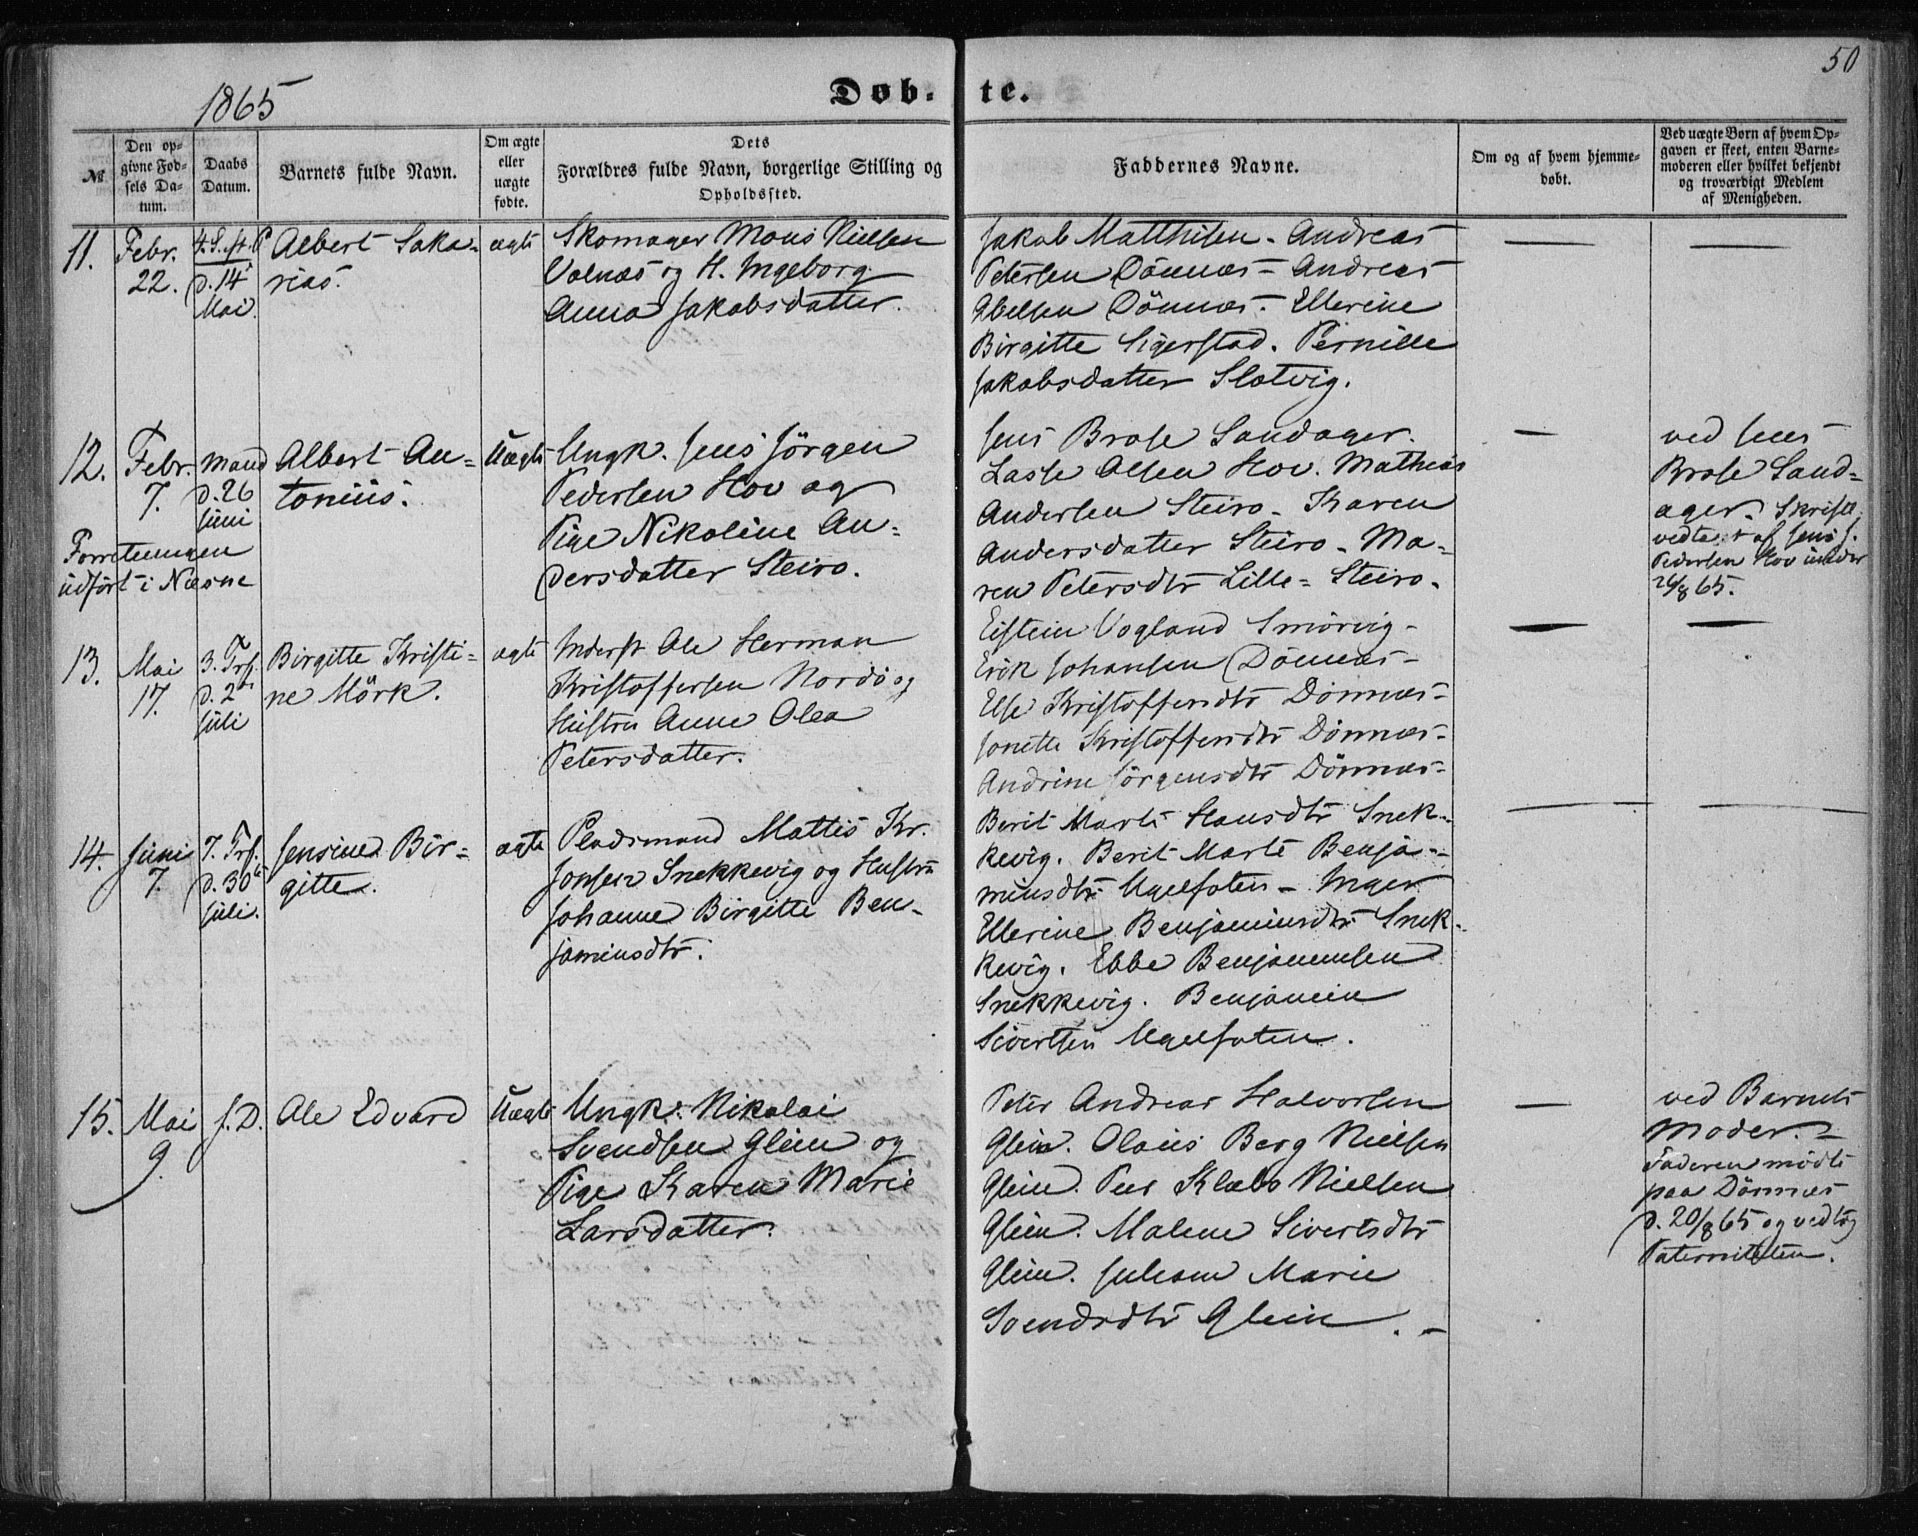 50
1865
Døb- te.
№
Den op-
givne Fød-
sels Da-
tum.
Daabs
Datum.
Barnets fulde Navn.
Om ægte
eller
uægte
fødte.
Dets
Forældres fulde Navn, borgerlige Stilling og
Opholdssted.
Faddernes Navne.
Om og af hvem hjemme-
døbt.
Ved uægte Børn af hvem Op-
gaven er skeet, enten Barne-
moderen eller hvilket bekjendt
og troværdigt Medlem
af Menigheden.
11.
Febr.
22.
4. S. ft. P
d. 14
Mai.
Albert Saka-
rias.
ægte
Skomager Mons Nielsen
Valnæs og H. Ingeborg
Anna Jakobsdatter.
Jakob Matthisen - Andreas
Petersen Dönnæs - Andreas
Abelsen Dönnæs - Ellerine
Birgitte Sigerstad. Pernille
Jakobsdatter Slotvig.
—
—
12.
Febr.
7.
Mand
d. 26
Juni
Forretningen
udført i Næsne
Albert An-
tonius.
Uægte
Ungk. Jens Jörgen
Pedersen Hov og
Pige Nikoline An-
dersdatter Steiro.
Jens Brose Sandager.
Lasse Olsen Hov. Mathias
Andersen Steiro - Karen
Andersdatter Steiro - Ma-
ren Petersdtr Lille- Steiro.
—
ved Jens
Brose Sand-
ager. Skriftl.
vedtaget af Jens J.
Pedersen Hov under
26/8 65.
13.
Mai
17.
3. Trf.
d. 2
Juli
Birgitte Kristi-
ne Mörk.
ægte
Inderst Ole Herman
Kristoffersen Nordö og
Hustru Anne Olea
Petersdatter.
Eistein Vogland Smörvig -
Erik Johansen Dönnæs -
Else Kristoffersdtr Dönnæs -
Jonette Kristoffersdtr Dönnæs -
Andrine Jörgensdtr Dönnæs -
—
—
14.
Juni
7.
7. Trf.
d. 30
Juli.
Jensine Bir-
gitte.
ægte
Pladsmand Mattis Kr.
Jonsen Snekkevig og Hustru
Johanne Birgitte Ben-
jaminsdtr.
Berit Marte Hansdtr Snek-
kevig. Berit Marte Benja-
minsdtr Ugelfoten - Inger
Ellerine Benjaminsdtr Snek-
kevig. Ebbe Benjaminsen
Snekkevig. Benjamin
Sivertsen Ugelfoten.
—
—
15.
Mai
9.
s. D.
Ole Edvard
Uægte
Ungk. Nikolai
Svendsen Glein og
Pige Karen Marie
Larsdatter.
Peter Andreas Halvorsen
Glein. Olaus Berg Nielsen
Glein. Peer Klæbo Nielsen
Glein. Malene Sivertsdtr
Glein. Marie
Svendsdtr Glein. -
—
ved Barnets
Moder. -
Faderen mödte
paa Dönnæs
d. 20/8 65 og vedtog
Paterniteten.